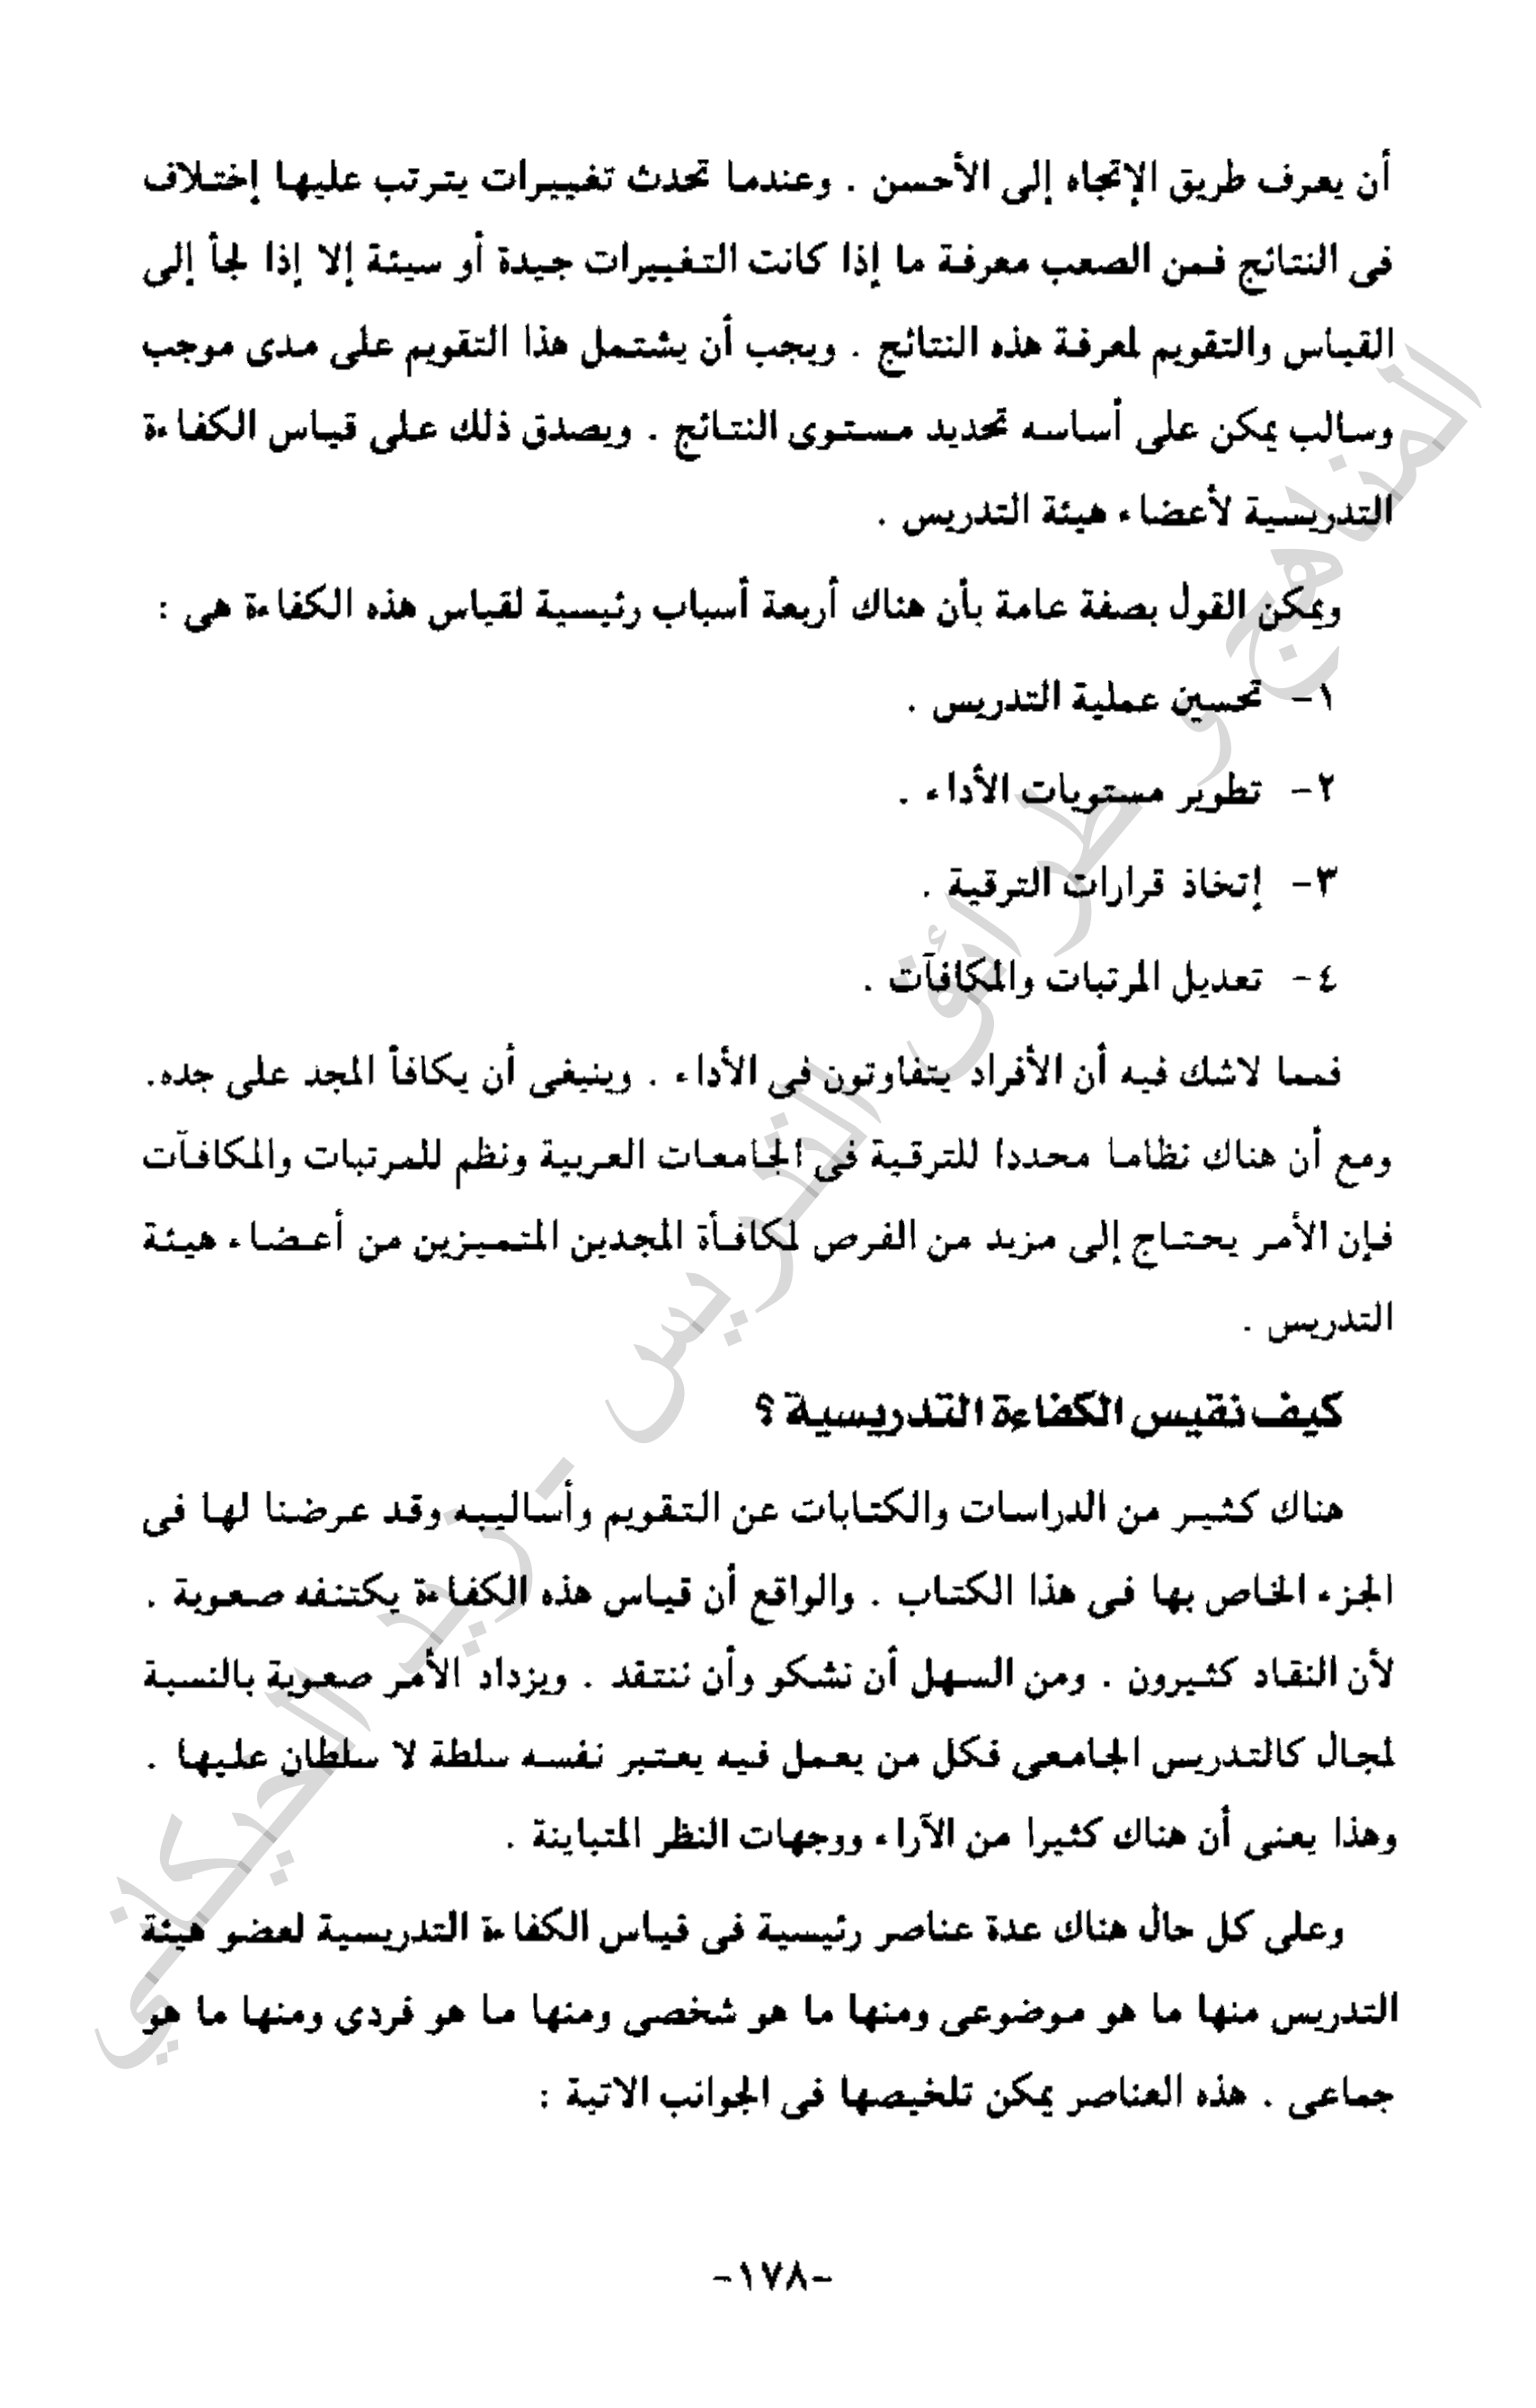 أن يعرف طريق الإتجاه إلى الأحسن . وعندما تحدث تغييرات يترتب عليها إختلاف
فى النتائج فمن الصعب معرفة ما إذا كانت التغييرات جيدة أو سيئة إلا إذا لجأ إلى
القياس والتقويم لمعرفة هذه النتائج . ويجب أن يشتمل هذا التقويم على مدى موجب
وسالب يمكن على أساسه تحديد مستوى النتائج . ويصدق ذلك على قياس الكفاءة
التدريسية لأعضاء هيئة التدريس .
ويمكن القول بصفة عامة بأن هناك أربعة أسباب رئيسية لقياس هذه الكفاءة هى :
١- تحسين عملية التدريس .
٢- تطوير مستويات الأداء .
٣- إتخاذ قرارات الترقية .
٤- تعديل المرتبات والمكافآت .
فمما لاشك فيه أن الأفراد يتفاوتون فى الأداء . وينبغى أن يكافأ المجد على جده.
ومع أن هناك نظاما محددا للترقية فى الجامعات العربية ونظم للمرتبات والمكافآت
فإن الأمر يحتاج إلى مزيد من الفرص لمكافأة المجدين المتميزين من أعضاء هيئة
التدريس .
كيف نقيس الكفاءة التدريسية ؟
هناك كثير من الدراسات والكتابات عن التقويم وأساليبه وقد عرضنا لها فى
الجزء الخاص بها فى هذا الكتاب . والواقع أن قياس هذه الكفاءة يكتنفه صعوبة .
لأن النقاد كثيرون . ومن السهل أن نشكو وأن ننتقد . ويزداد الأمر صعوبة بالنسبة
لمجال كالتدريس الجامعى فكل من يعمل فيه يعتبر نفسه سلطة لا سلطان عليها .
وهذا يعنى أن هناك كثيرا من الآراء ووجهات النظر المتباينة .
وعلى كل حال هناك عدة عناصر رئيسية فى قياس الكفاءة التدريسية لعضو هيئة
التدريس منها ما هو موضوعى ومنها ما هو شخصى ومنها ما هو فردى ومنها ما هو
جماعى . هذه العناصر يمكن تلخيصها فى الجوانب الاتية :
-١٧٨-
المناهج و طرائق التدريس - ريد الچيكاني